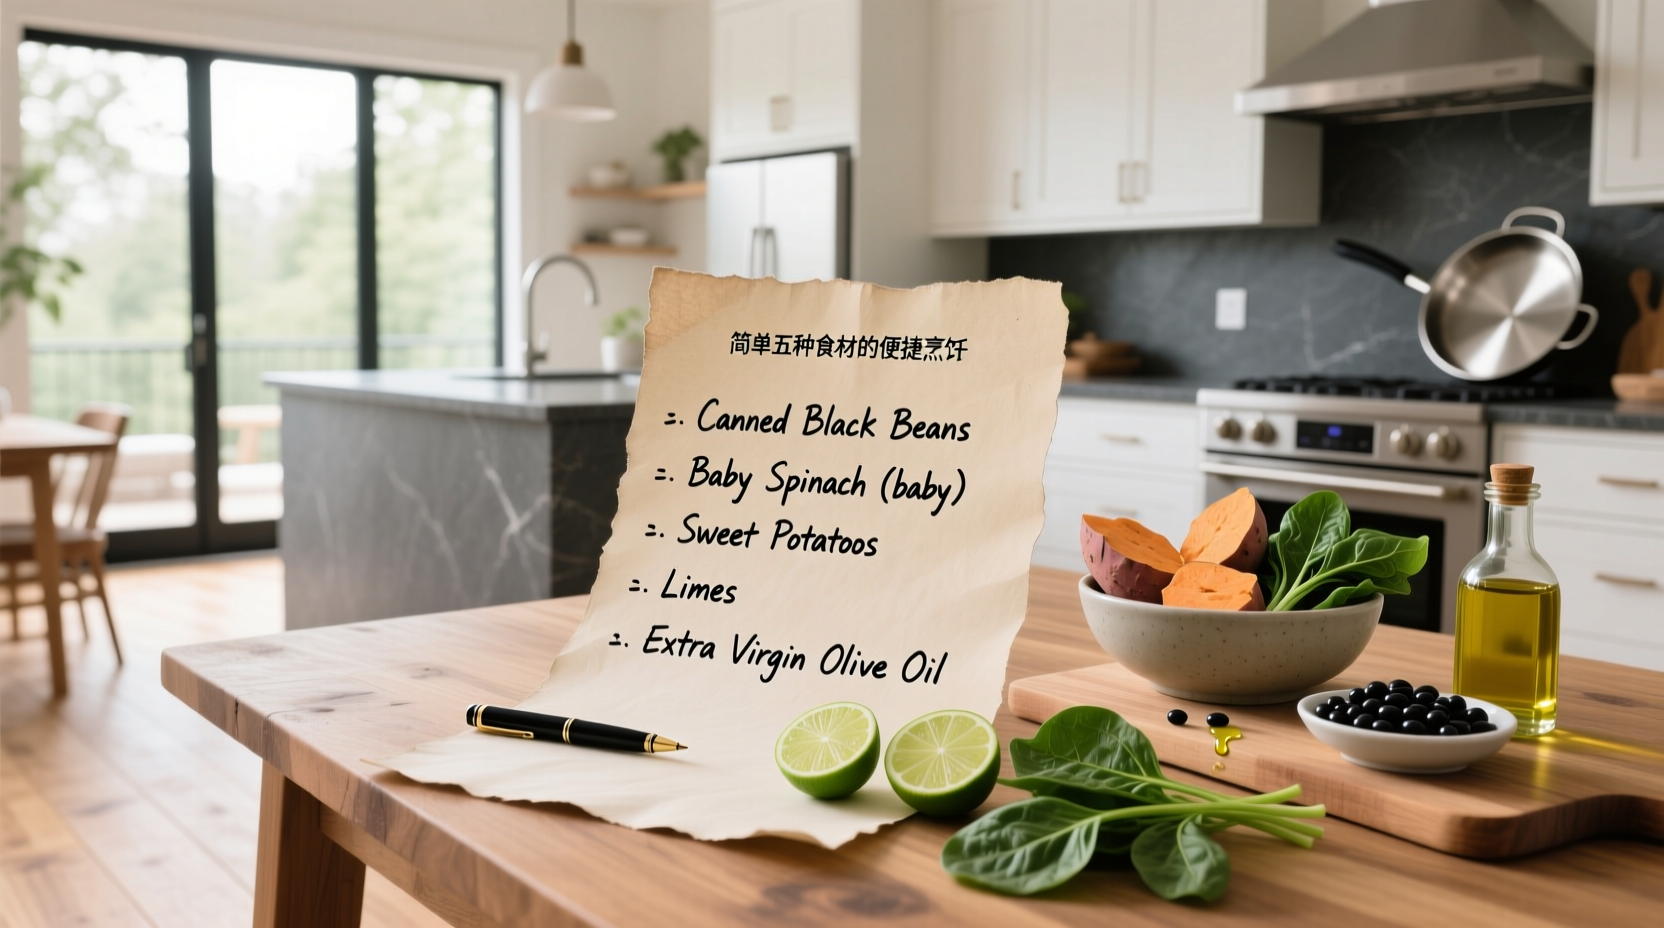 简单五种食材的便捷烹饪
=. Canned Black Beans
=. Baby Spinach (baby)
=. Sweet Potatoos
=. Limes
=. Extra Virgin Olive Oil